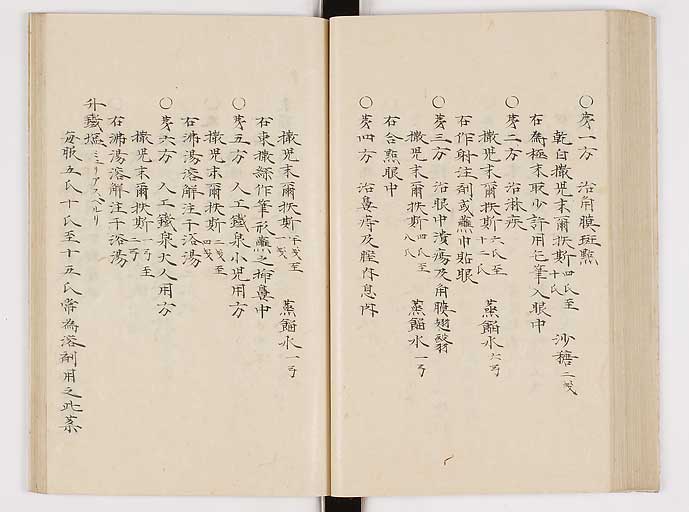 ○第一方　治角膜斑點
乾白撒児末爾扶斯 四氏至十氏　沙糖 二戔
右為極末取少許用毛筆入眼中
○第二方　治淋疾
撒児末爾扶斯 六氏至十二氏　蒸餾水 六弓
右作射注剤或蘸巾貼眼
○第三方　治眼中潰瘍及角膜翅翳
撒児末爾扶斯 四氏至八氏　蒸餾水 一弓
右合點眼中
○第四方　治鼻痔及息肉
撒児末爾扶斯 半戔至一戔　蒸餾水 一弓
右束撒綿作筆形蘸之鼻中
○第五方　人工鐵泉小児用方
撒児末爾扶斯 二戔至四戔
右沸湯溶解注于浴湯
○第六方　人工鐵泉大人用方
撒児末爾扶斯 一弓至二弓
右沸湯溶解注于浴湯
外鐵塩ミリアスペルリ
毎服五氏十氏至十五氏常為溶剤用之此薬